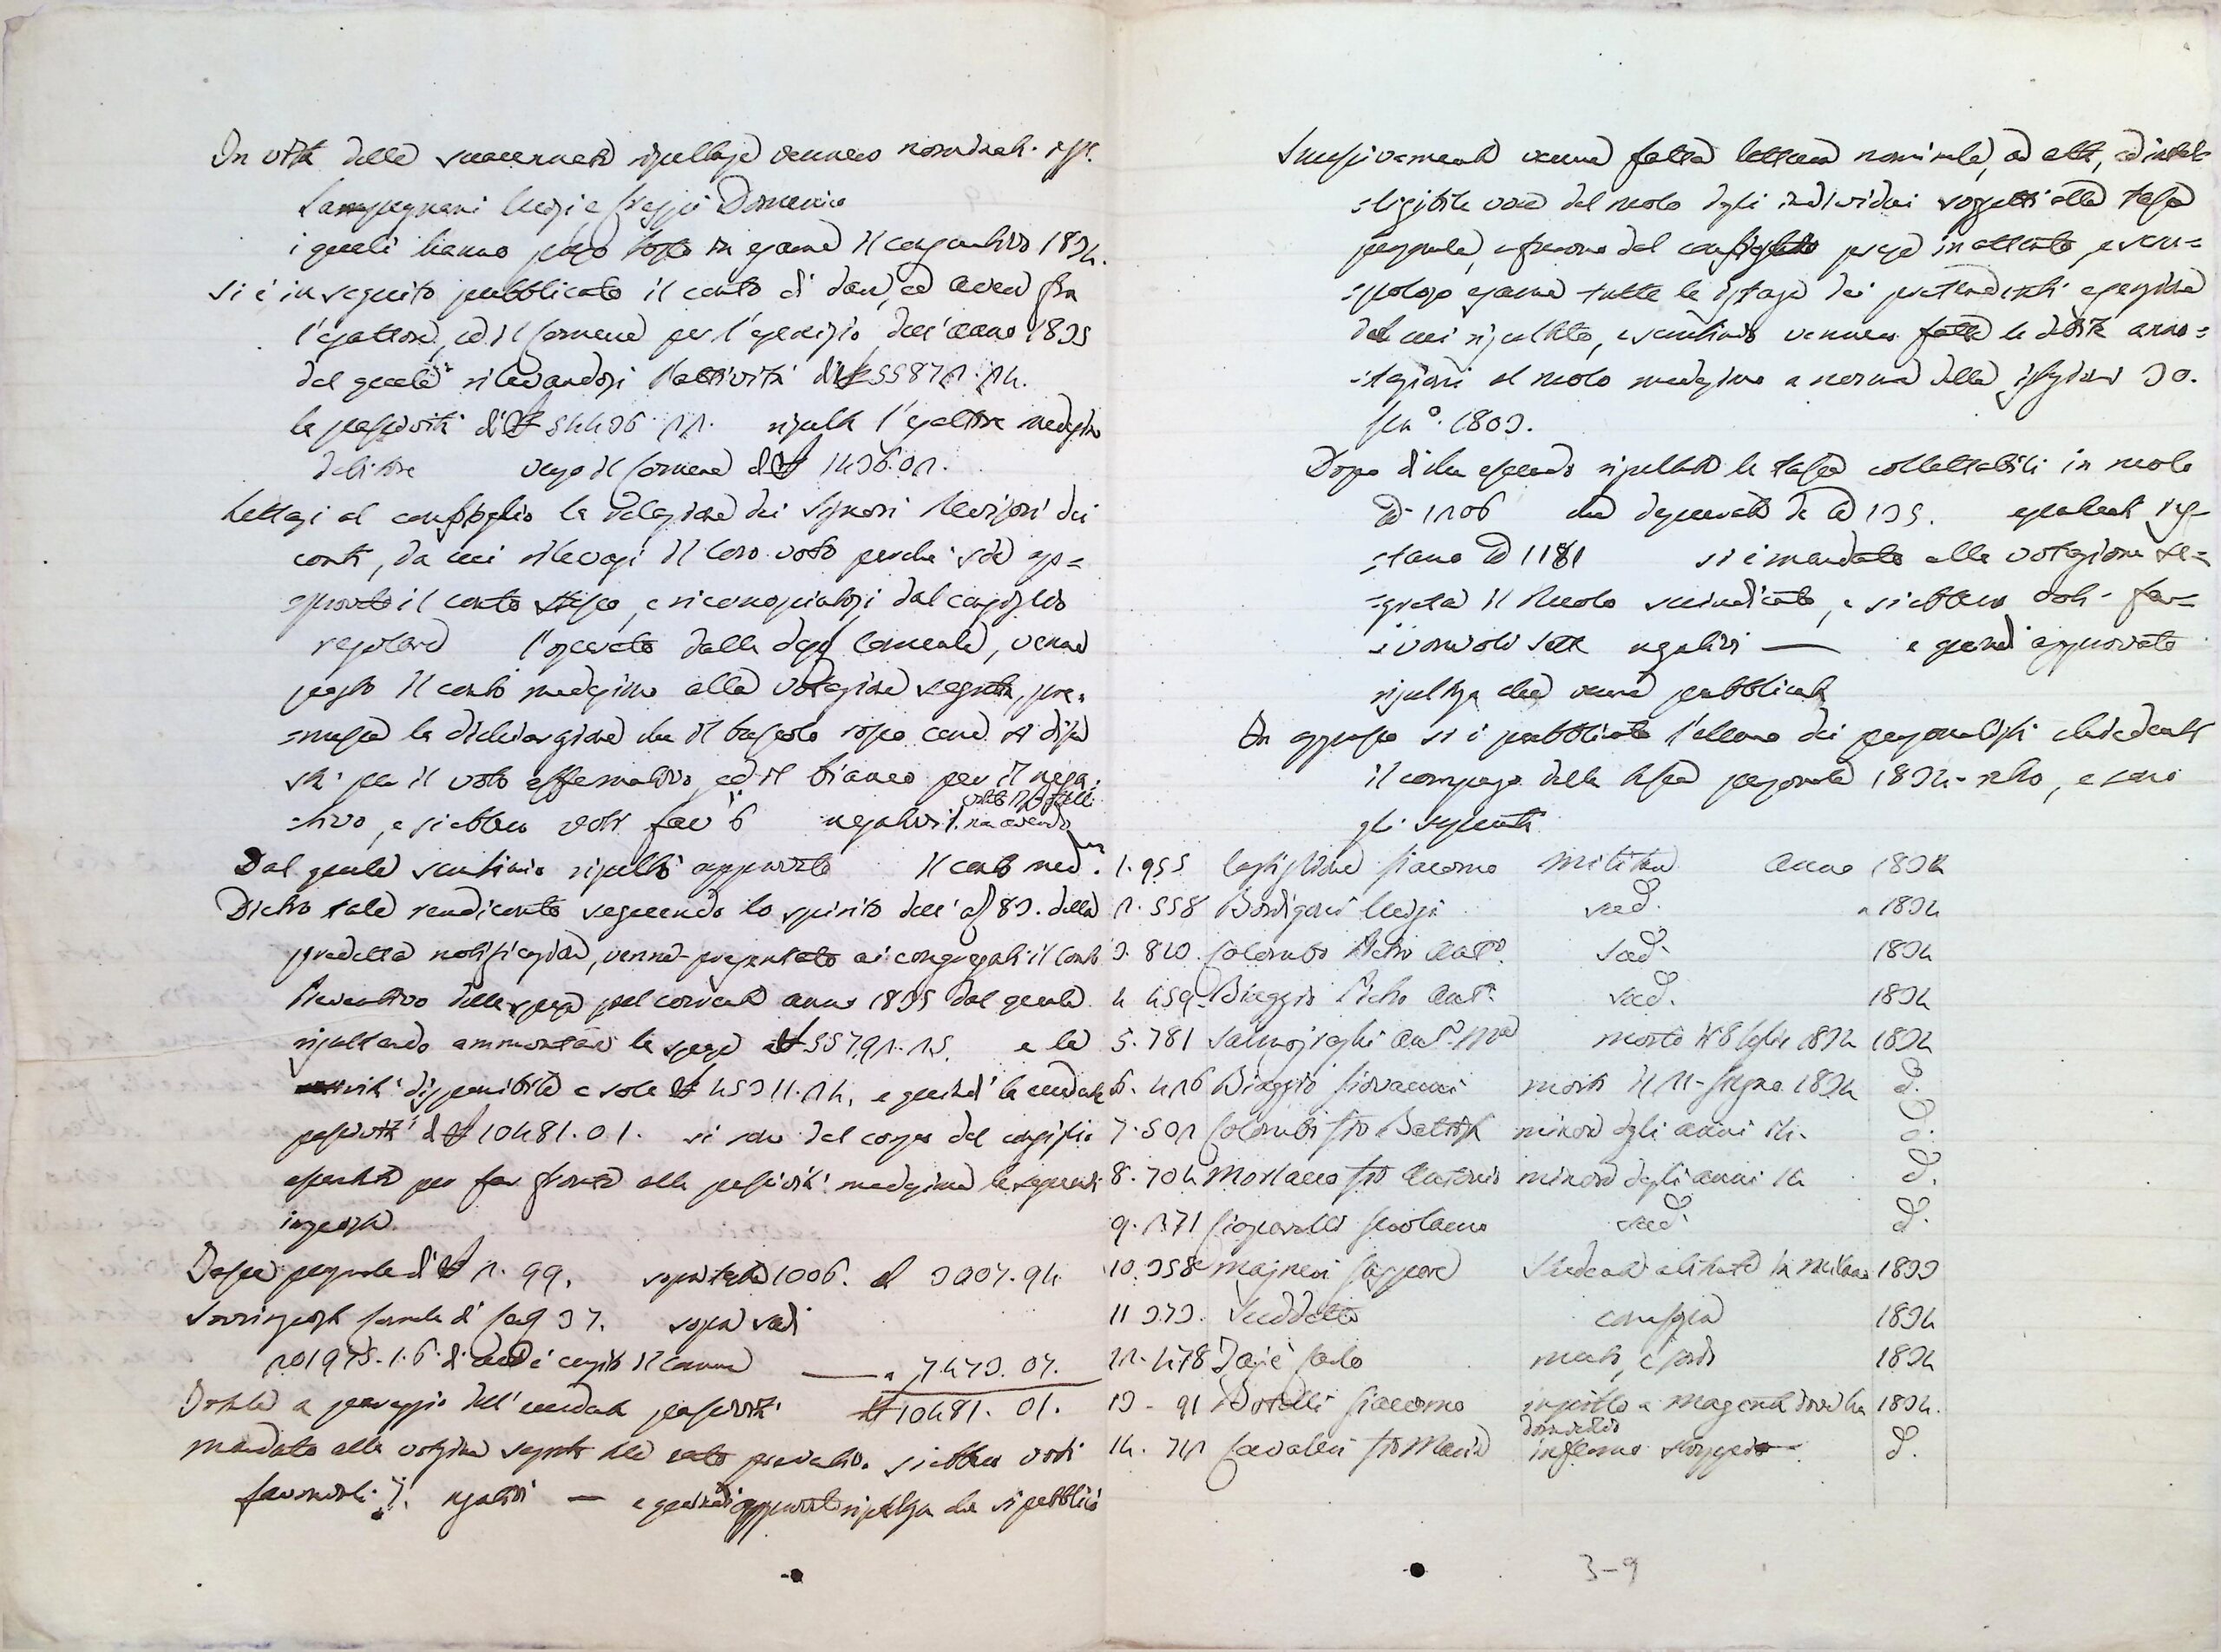 In vista della suaccennata risultanza vennero nominati i SSri.
Lampugnani Luigi e Crespi Domenico
i quali hanno preso tosto in esame il consuntivo 1834.
Si è in seguito pubblicato il conto di dare, ed avere fra
l'esattore, ed il Comune per l'esercizio dell'anno 1835
dal quale rilevandosi l'attività di £ 55872.24.
le passività di £ 54436.22. risulta l'esattore medesimo
debitore verso il Comune di £ 1436.02.
Lettasi al consiglio la relazione dei Signori Revisori dei
conti, da cui rilevasi il loro voto perchè sia ap=
=provato il conto stesso, e riconosciutosi dal consiglio
regolare l'operato dalla Dep.e Comunale, venne
posto il conto medesimo alla votazione segreta, pre=
=messa la dichiarazione che il bossolo rosso
per il voto affermativo, ed il bianco per il nega=
=tivo, e si ebbero voti fav. 6 negativi 1. non avendo
votato
Dal quale scrutinio risultò approvato il conto med.mo
Dietro tale rendiconto seguendo lo spirito dell'§ 83. della
predetta notificazione, venne presentato ai congregati il conto
Preventivo delle spese pel corrente anno 1835 dal quale
risultando ammontare le spese a £ 55792.25. e le
attività disponibile a sole £ 45311.24. e quindi la eccedente
passività di £ 10481.01. si sono dal corpo del consiglio
per far fronte alla passività medesima le seguenti
imposte
Tassa personale di £ 2.99. sopra teste 1006. £ 3007.94
Sovrimposta Comunale di 37. sopra scudi
201975.1.6. di cui è censito il Comune — " 7473.07.
Totale a pareggio dell'eccedente passività £ 10481.01.
Mandato alla votazione segreta tale stato preventivo si ebbero voti
favorevoli 7. negativi — e quindi approvato risultanza che si pubblicò
Successivamente venne fatta lettura nominale, ad alta, ed intel=
=ligibile voce del ruolo degli individui soggetti alla tassa
personale, e furono dal consiglio prese in attento, e scru=
=poloso esame tutte le istanze dei pretendenti esenzione
dal cui risultato, e scrutinio vennero fatte le debite anno=
=tazioni al ruolo medesimo a norma delle istruzioni 30.
Gen.o 1803.
Dopo di che essendo risultate le tasse collettabili in ruolo
N. 1206 che depurate da N. 135. esenti re=
=stano si è mandato alla votazione se=
=greta il Ruolo suindicato, e si ebbero voti fa=
=vorevoli sette negativi — e quindi approvato
risultanza che venne pubblicata
In appresso si è pubblicato l'elenco dei personalisti chiedenti
il compenso della tassa personale 1834 retro, e sono
gli seguenti
1. 955 Castiglione Giacomo Militare Anno 1834
2. 558 Bordigoni Luigi sud. " 1834
3. 820. Colombo Pietro Ant.o sud. 1834
4 459. Biaggio Pietro Ant.o sud. 1834
5. 781 Salmojraghi Ant. M.a morto li 8 Luglio 1834 1834
6. 426 Biaggio Giovanni morto li 22 Giugno 1834 d.
7. 502 Colombo Gio Battista minore degli anni 14. d.
8. 704 Morlacco Gio Antonio minore degli anni 14 d.
9. 271 Girolamo sud. d.
10. 358 Majneri Gaspare Studente abitante in Milano 1833
11 373. Suddetto come sopra 1834
12. 478 Togiè Carlo muto, e sordo 1834
13 - 91 Borelli Giacomo inscritto a Magenta dove ha
domicilio 1834.
14. 742 Cavalleri Gio Maria infermo d.
3-9